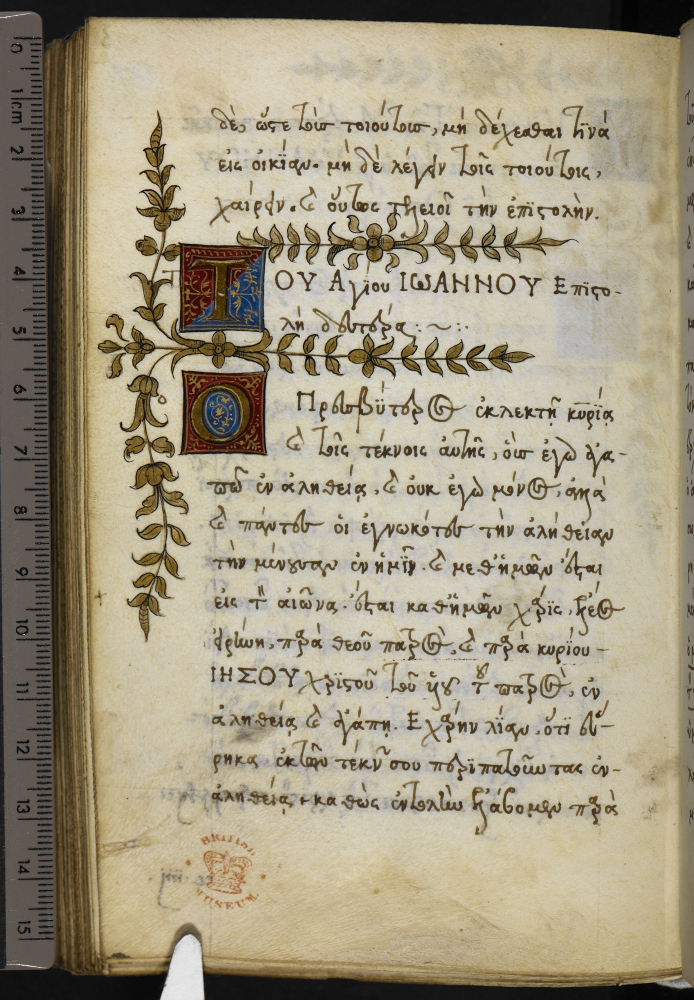 δὲ, ὥστε τοὺς τοιούτους, μὴ δέχεσθαι τινὰ
εἰς οἰκίαν. μὴ δὲ λέγειν τοῖς τοιούτοις,
χαίρειν. καὶ οὕτως τελειοῖ τὴν ἐπιστολήν.
ΤΟΥ Αγίου ΙΩΑΝΝΟΥ Επιστο-
λὴ δευτέρα :~:·
Ο Πρεσβύτερος ἐκλεκτῇ κυρίᾳ
καὶ τοῖς τέκνοις αὐτῆς, οὓς ἐγὼ ἀγα-
πῶ ἐν ἀληθείᾳ, καὶ οὐκ ἐγὼ μόνος, ἀλλὰ
καὶ πάντες οἱ ἐγνωκότες τὴν ἀλήθειαν
τὴν μένουσαν ἐν ἡμῖν. καὶ μεθ' ἡμῶν ἔσται
εἰς τὸν αἰῶνα. ἔσται καθ' ἡμῶν χάρις, ἔλεος
εἰρήνη, παρὰ θεοῦ πατρὸς, καὶ παρὰ κυρίου
ΙΗΣΟΥ χριστοῦ τοῦ υἱοῦ τοῦ πατρὸς, ἐν
ἀληθείᾳ καὶ ἀγάπῃ. Εχάρην λίαν, ὅτι εὕ-
ρηκα ἐκ τῶν τέκνων σου περιπατοῦντας ἐν
ἀληθείᾳ, καθὼς ἐντολὴν ἐλάβομεν παρὰ
BRITISH
MUSEUM
0 1cm 2 3 4 5 6 7 8 9 10 11 12 13 14 15